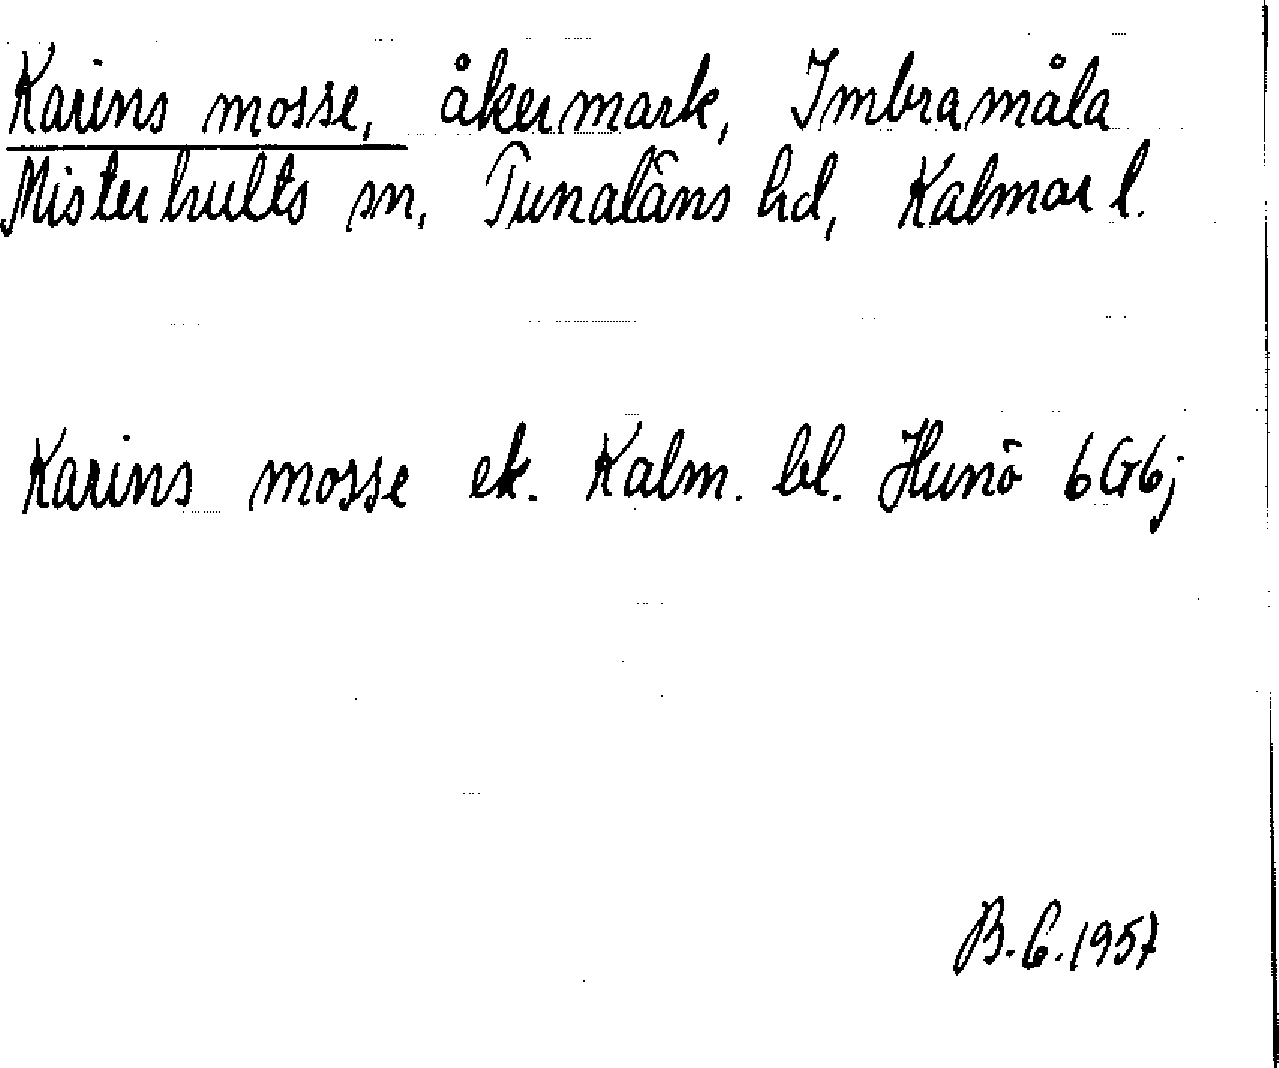 Karins mosse, åkermark, Imbramåla
Misterhults sn, Tunaläns hd, Kalmar l.
Karins mosse ek. Kalm. bl. Hunö 6G6j
B.G.1957